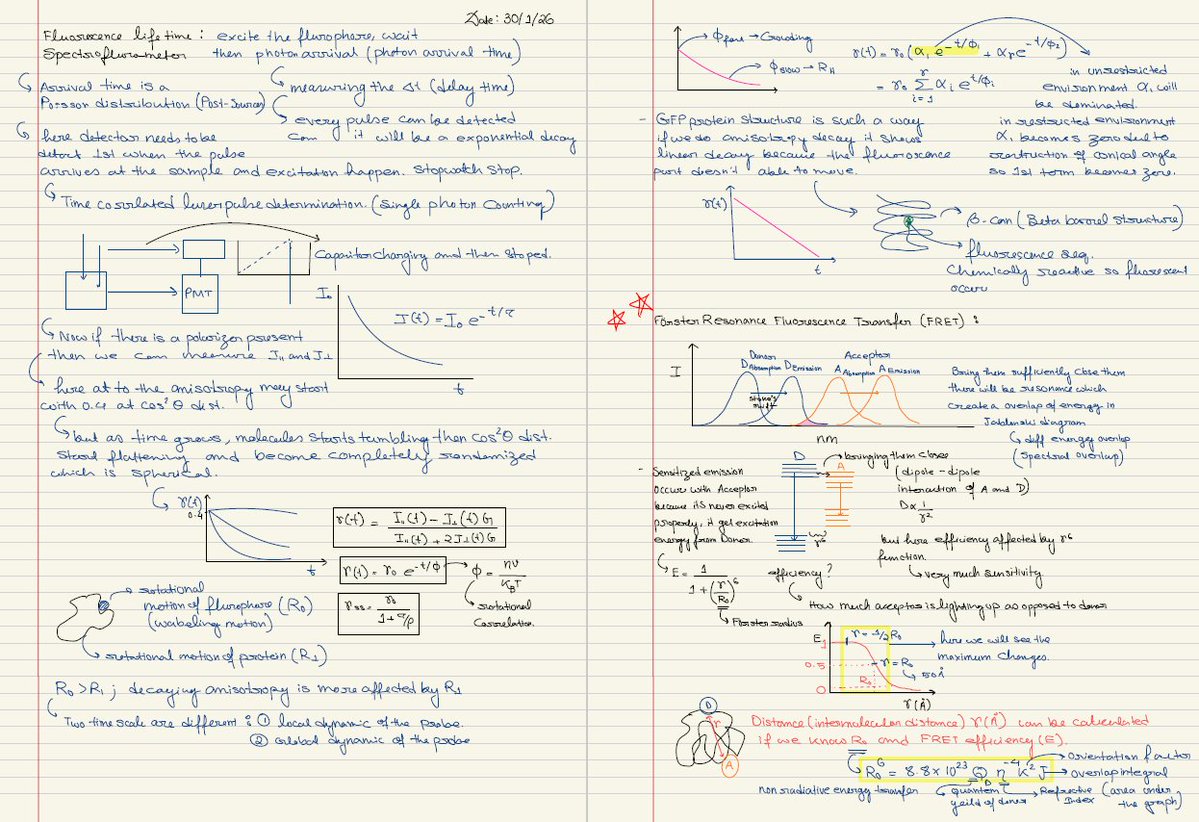 Date: 30/1/26
Fluorescence life time : excite the flurophore, wait
Spectroflurometer then photon arrival (photon arrival time)
↳ Arrival time is a
Poisson distribution (Post-Source)
↳ measuring the Δt (delay time)
↳ every pulse can be detected
it will be a exponential decay
↳ here detector needs to be
detect 1st when the pulse
arrives at the sample and excitation happen. Stopwatch Stop.
↳ Time correlated laser pulse determination. (Single photon Counting)
Capacitor charging and then stoped.
PMT
I₀
I(t) = I₀ e^{-t/τ}
t
↳ Now if there is a polarizer present
then we can measure I∥ and I⊥
↳ here at t0 the anisotropy may start
with 0.4 at cos²θ dist.
↳ but as time grows, molecules starts tumbling then cos²θ dist.
start flattening and become completely randomized
which is spherical.
↳ r(t)
0.4
t
r(t) = (I∥(t) - I⊥(t) G) / (I∥(t) + 2I⊥(t) G)
r(t) = r₀ e^{-t/Φ} → Φ = ηv / K_BT
r_ss = r₀ / (1 + τ/ρ)
↳ rotational
Correlation.
→ rotational
motion of flurophore (R₀)
(wabeling motion)
↳ rotational motion of protein (R₁)
R₀ > R₁ ; decaying anisotropy is more affected by R₁
↳ Two time scale are different : ① local dynamic of the probe.
② global dynamic of the probe
Φfast → Crowding
Φslow → R_H
r(t) = r₀ (α₁ e^{-t/Φ₁} + α₂ e^{-t/Φ₂})
= r₀ Σ_{i=1}^{r} α_i e^{-t/Φ_i}
in unrestricted
environment α₁ will
be dominated.
in restricted environment
α₁ becomes zero due to
restruction of conical angle
so 1st term becomes zero.
- GFP protein structure is such a way
if we do anisotropy decay it shows
linear decay because the fluroscence
part doesn't able to move.
r(t)
t
β-can (Beta barrel structure)
fluorescence seq.
Chemically reactive so fluorescent
occur
Förster Resonance Fluorescence Transfer (FRET) :
I
Donor
D Absorption D Emission
Acceptor
A Absorption A Emission
Stoke's
shift
nm
Bring them sufficiently close them
there will be resonance which
create a overlap of energy in
Jablonski diagram
↳ diff energy overlap
(Spectral overlap)
D
A
bringing them closer
(dipole-dipole
interaction of A and D)
D ∝ 1/r²
- Sensitized emission
occur with Acceptor
because its never excited
properly, it get excitation
energy from Donor.
but here efficiency affected by r⁶
function.
↳ very much sensitivity
↳ E = 1 / (1 + (r/R₀)⁶)
↳ Förster radius
efficiency ?
↳ How much acceptor is lighting up as opposed to donor
E
1
0.5
0
r = 1/2 R₀
r = R₀
↳ 50 Å
R₀
r (Å)
here we will see the
maximum changes.
D
r
A
Distance (intermolecular distance) r(Å) can be calculated
if we know R₀ and FRET efficiency (E).
R₀⁶ = 8.8 × 10²³ Q_D η⁻⁴ K² J
orientation factor
overlap integral
(area under
the graph)
non radiative energy transfer
quantum
yeild of donor
Refractive
Index